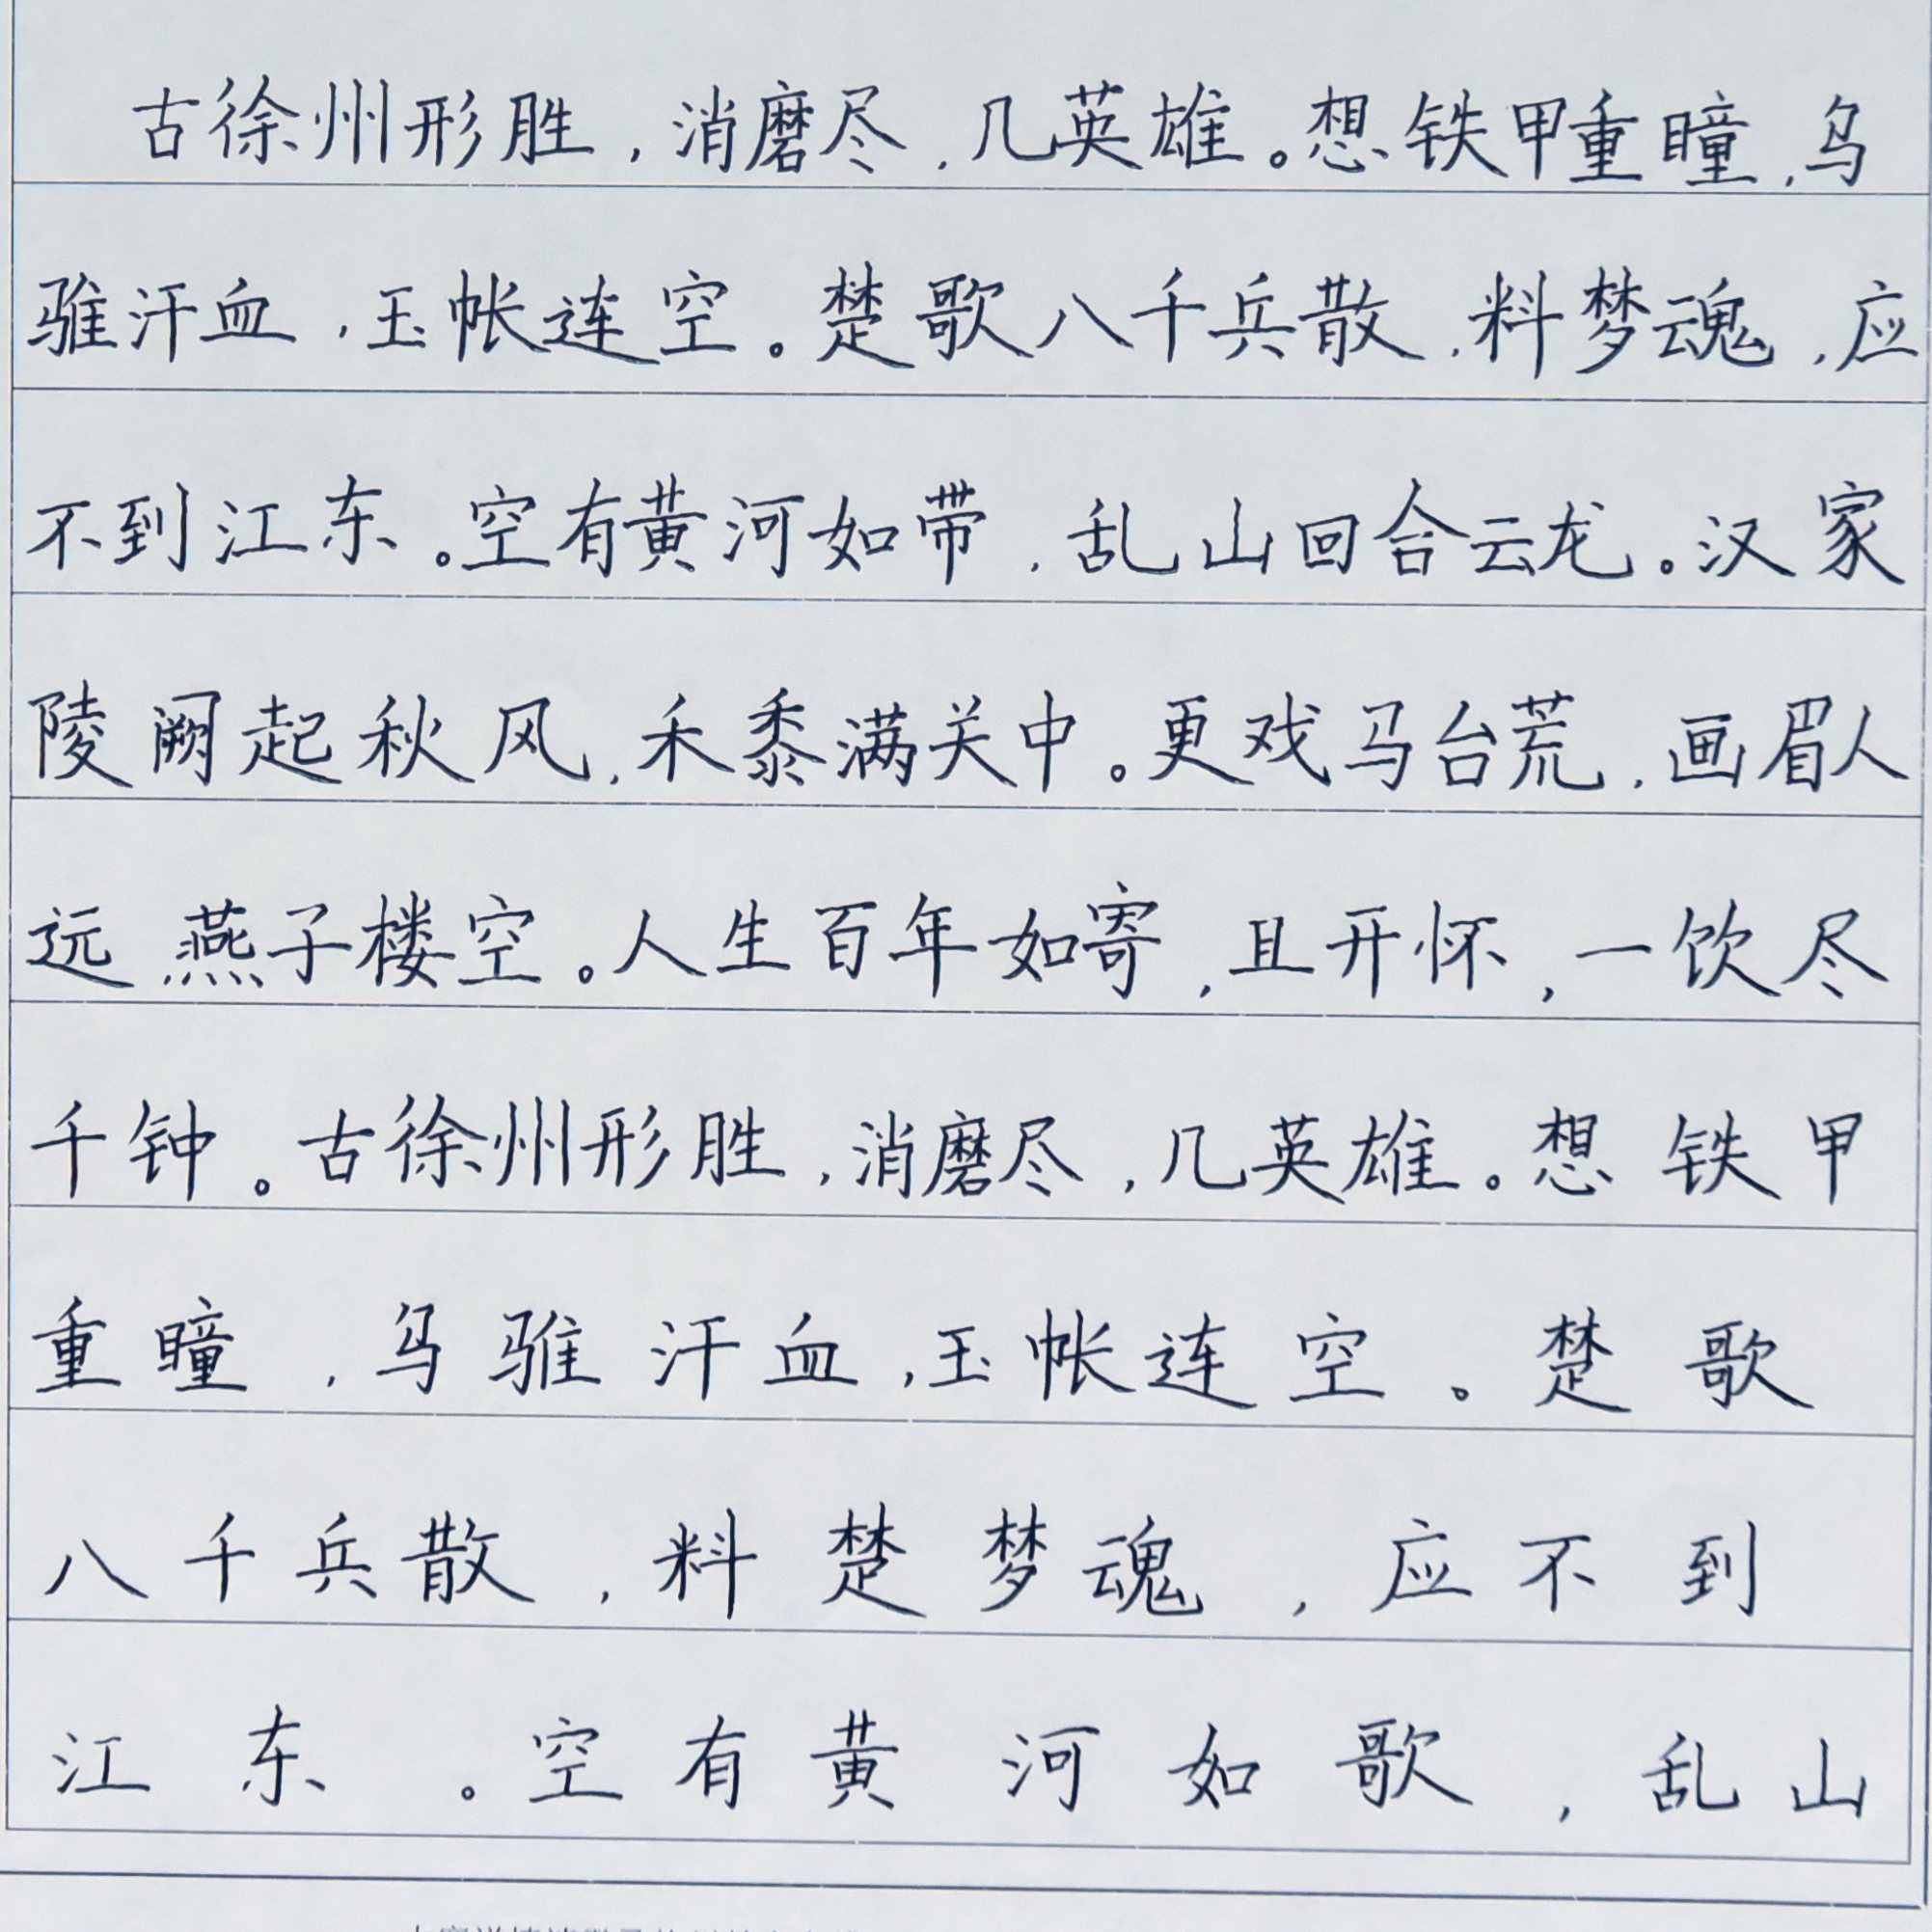 古徐州形胜，消磨尽，几英雄。想铁甲重瞳，乌
骓汗血，玉帐连空。楚歌八千兵散，料梦魂，应
不到江东。空有黄河如带，乱山回合云龙。汉家
陵阙起秋风，禾黍满关中。更戏马台荒，画眉人
远，燕子楼空。人生百年如寄，且开怀，一饮尽
千钟。古徐州形胜，消磨尽，几英雄。想铁甲
重瞳，乌骓汗血，玉帐连空。楚歌
八千兵散，料楚梦魂，应不到
江东。空有黄河如歌，乱山